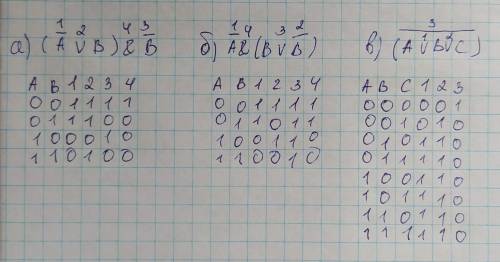 а) (A̅ ∨ B) & B̅
1 2 4 3
A B 1 2 3 4
0 0 1 1 1 1
0 1 1 1 0 0
1 0 0 0 1 0
1 1 0 1 0 0
б) A̅ & (B ∨ B̅)
1 4 3 2
A B 1 2 3 4
0 0 1 1 1 1
0 1 1 0 1 1
1 0 0 1 1 0
1 1 0 0 1 0
в) (A ∨ B ∨ C)
3
1 2
A B C 1 2 3
0 0 0 0 0 1
0 0 1 0 1 0
0 1 0 1 1 0
0 1 1 1 1 0
1 0 0 1 1 0
1 0 1 1 1 0
1 1 0 1 1 0
1 1 1 1 1 0